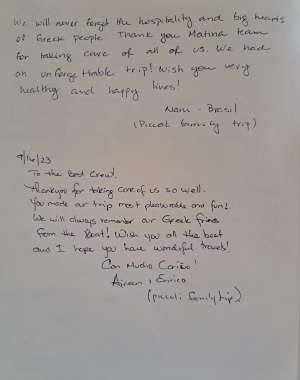 We will never forget the hospitality and big hearts
of Greek people Thank you Matina team
for taking care of all of us. We had
an unforgettable trip! Wish you very
healthy and happy lives!
- Brasil
(Piccoli family trip)
9/16/23
To the Best Crew!
Thank you for taking care of us so well.
You made our trip most pleasurable and fun!
We will always remember our Greek
from the Boat! Wish you all the best
and I hope you have wonderful travels!
Con Mucho Cariño!
Enrico
(piccoli family trip)